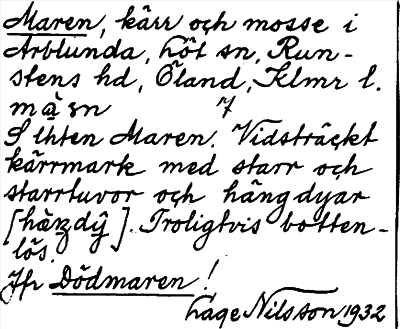 Maren, kärr och mosse i
Arblunda, Löt sn, Run-
stens hd, Öland, Klmr l.
7
S Ihten Maren. Vidsträckt
kärrmark med starr och
starrtuvor och hängdyar
Troligtvis botten-
lös.
Jfr Dödmaren!
Lage Nilsson 1932